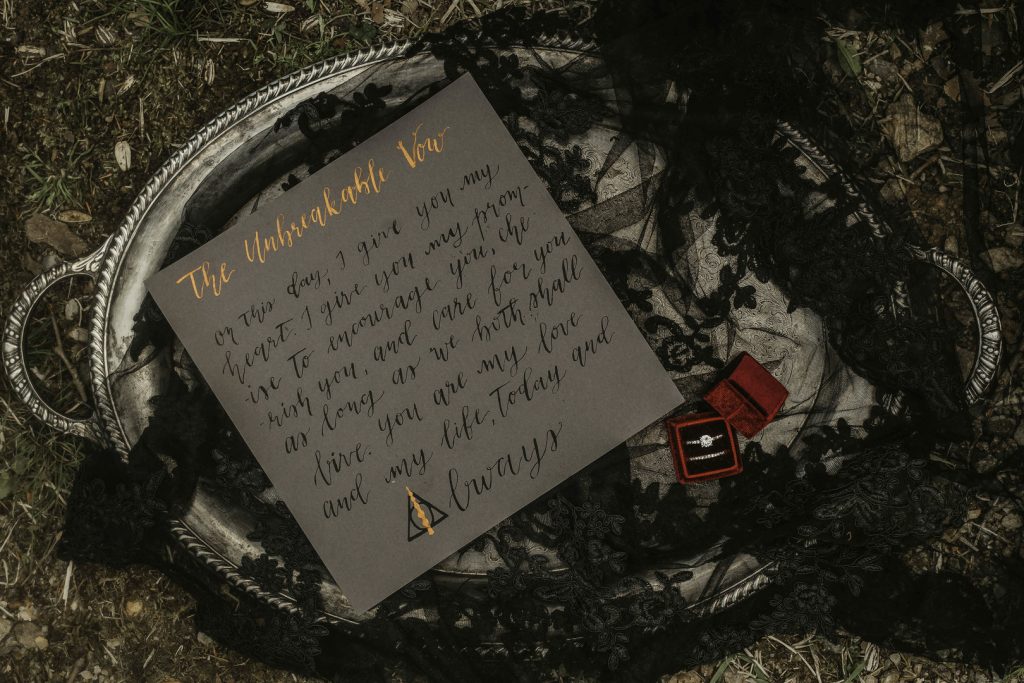 The Unbreakable Vow
on this day, I give you my
heart. I give you my prom-
-ise to encourage you, che
-rish you, and care for you
as long as we both shall
live. you are my love
and my life, Today and
always